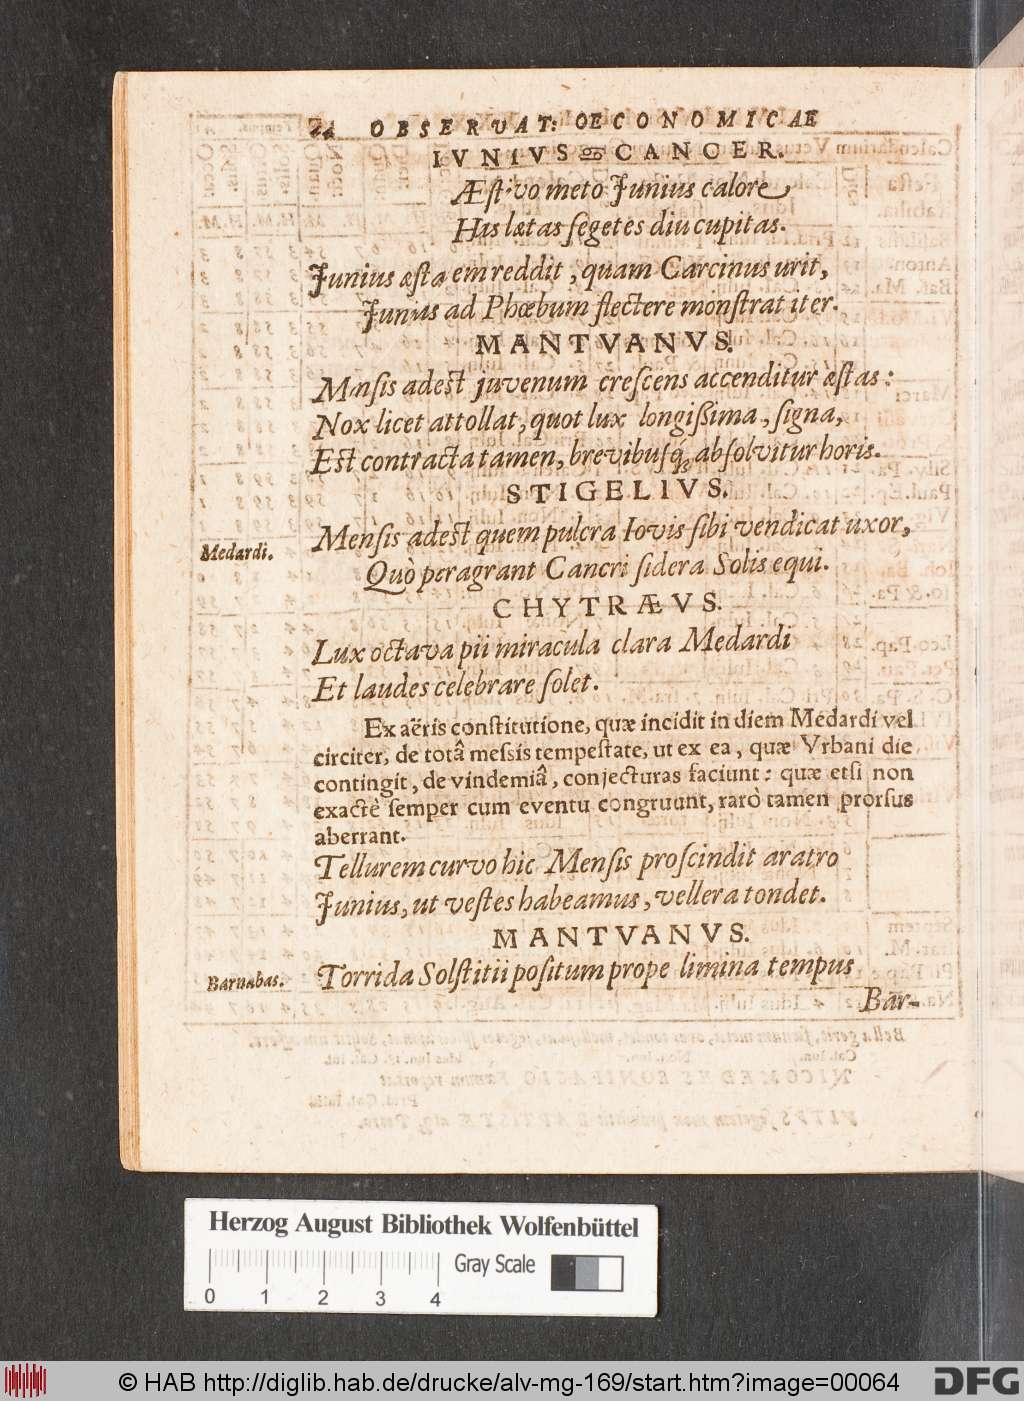 OBSERVAT: OECONOMICAE
IVNIVS ♋ CANCER.
Æstivo meto Junius calore
His lætas segetes diu cupitas.
Junius æstatem reddit, quam Carcinus urit,
Junius ad Phœbum flectere monstrat iter.
MANTVANVS.
Mensis adest juvenum crescens accenditur æstas:
Nox licet attollat, quot lux longißima, signa,
Est contracta tamen, brevibusq; absolvitur horis.
STIGELIVS.
Medardi. Mensis adest quem pulcra Iovis sibi vendicat uxor,
Quò peragrant Cancri sidera Solis equi.
CHYTRÆVS.
Lux octava pii miracula clara Medardi
Et laudes celebrare solet.
Ex aëris constitutione, quæ incidit in diem Medardi vel
circiter, de totâ messis tempestate, ut ex ea, quæ Vrbani die
contingit, de vindemiâ, conjecturas faciunt: quæ etsi non
exactè semper cum eventu congruunt, rarò tamen prorsus
aberrant.
Tellurem curvo hic Mensis proscindit aratro
Junius, ut vestes habeamus, vellera tondet.
MANTVANVS.
Barnabas. Torrida Solstitii positum prope limina tempus
Bar-
Herzog August Bibliothek Wolfenbüttel
Gray Scale
0 1 2 3 4
© HAB http://diglib.hab.de/drucke/alv-mg-169/start.htm?image=00064
DFG